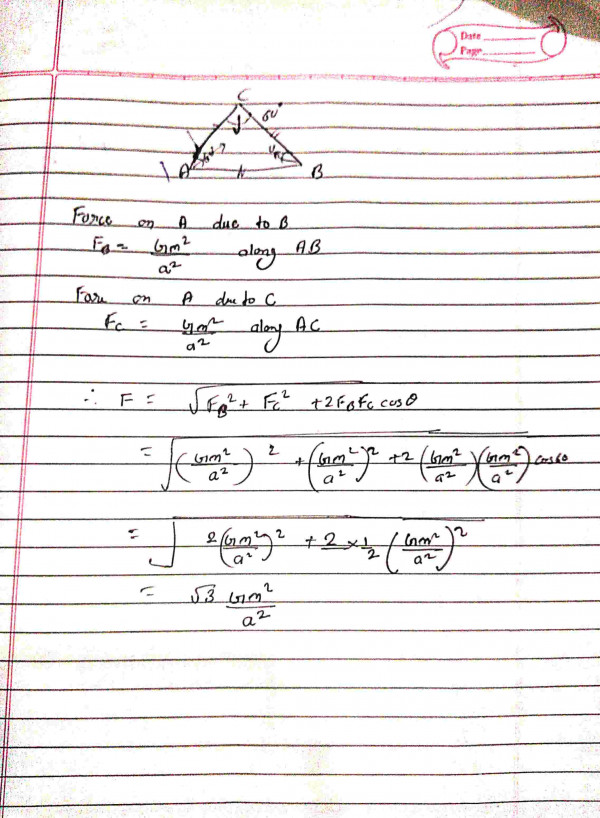 Date
Page
C
60°
A
B
Force on A due to B
F_B = Gm²/a² along AB
Force on A due to C
F_C = Gm²/a² along AC
∴ F = √(F_B² + F_C² + 2F_B F_C cosθ)
= √((Gm²/a²)² + (Gm²/a²)² + 2(Gm²/a²)(Gm²/a²) cos60)
= √(2(Gm²/a²)² + 2×1/2 (Gm²/a²)²)
= √3 Gm²/a²